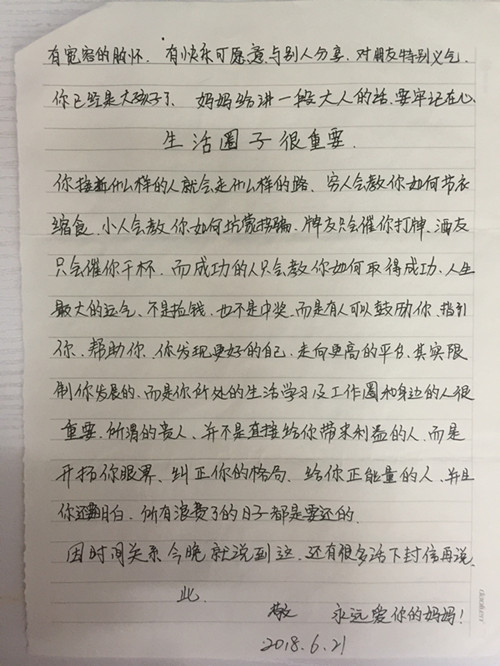 有宽容的胸怀、有快乐可愿意与别人分享、对朋友特别义气.
你已经是大孩子了、妈妈给讲一段大人的话、要牢记在心
生活圈子很重要.
你接触什么样的人就会走什么样的路、穷人会教你如何节衣
缩食、小人会教你如何坑蒙拐骗、牌友只会催你打牌、酒友
只会催你干杯、而成功的人只会教你如何取得成功、人生
最大的运气、不是捡钱、也不是中奖、而是有人可以鼓励你、指引
你、帮助你、你发现更好的自己、走向更高的平台、其实限
制你发展的、而是你所处的生活学习及工作圈和身边的人很
重要、所谓的贵人、并不是直接给你带来利益的人、而是
开拓你眼界、纠正你的格局、给你正能量的人、并且
你还要明白、所有浪费了的日子都是要还的.
因时间关系今晚就说到这、还有很多话下封信再说.
此
敬 永远爱你的妈妈!
2018.6.21